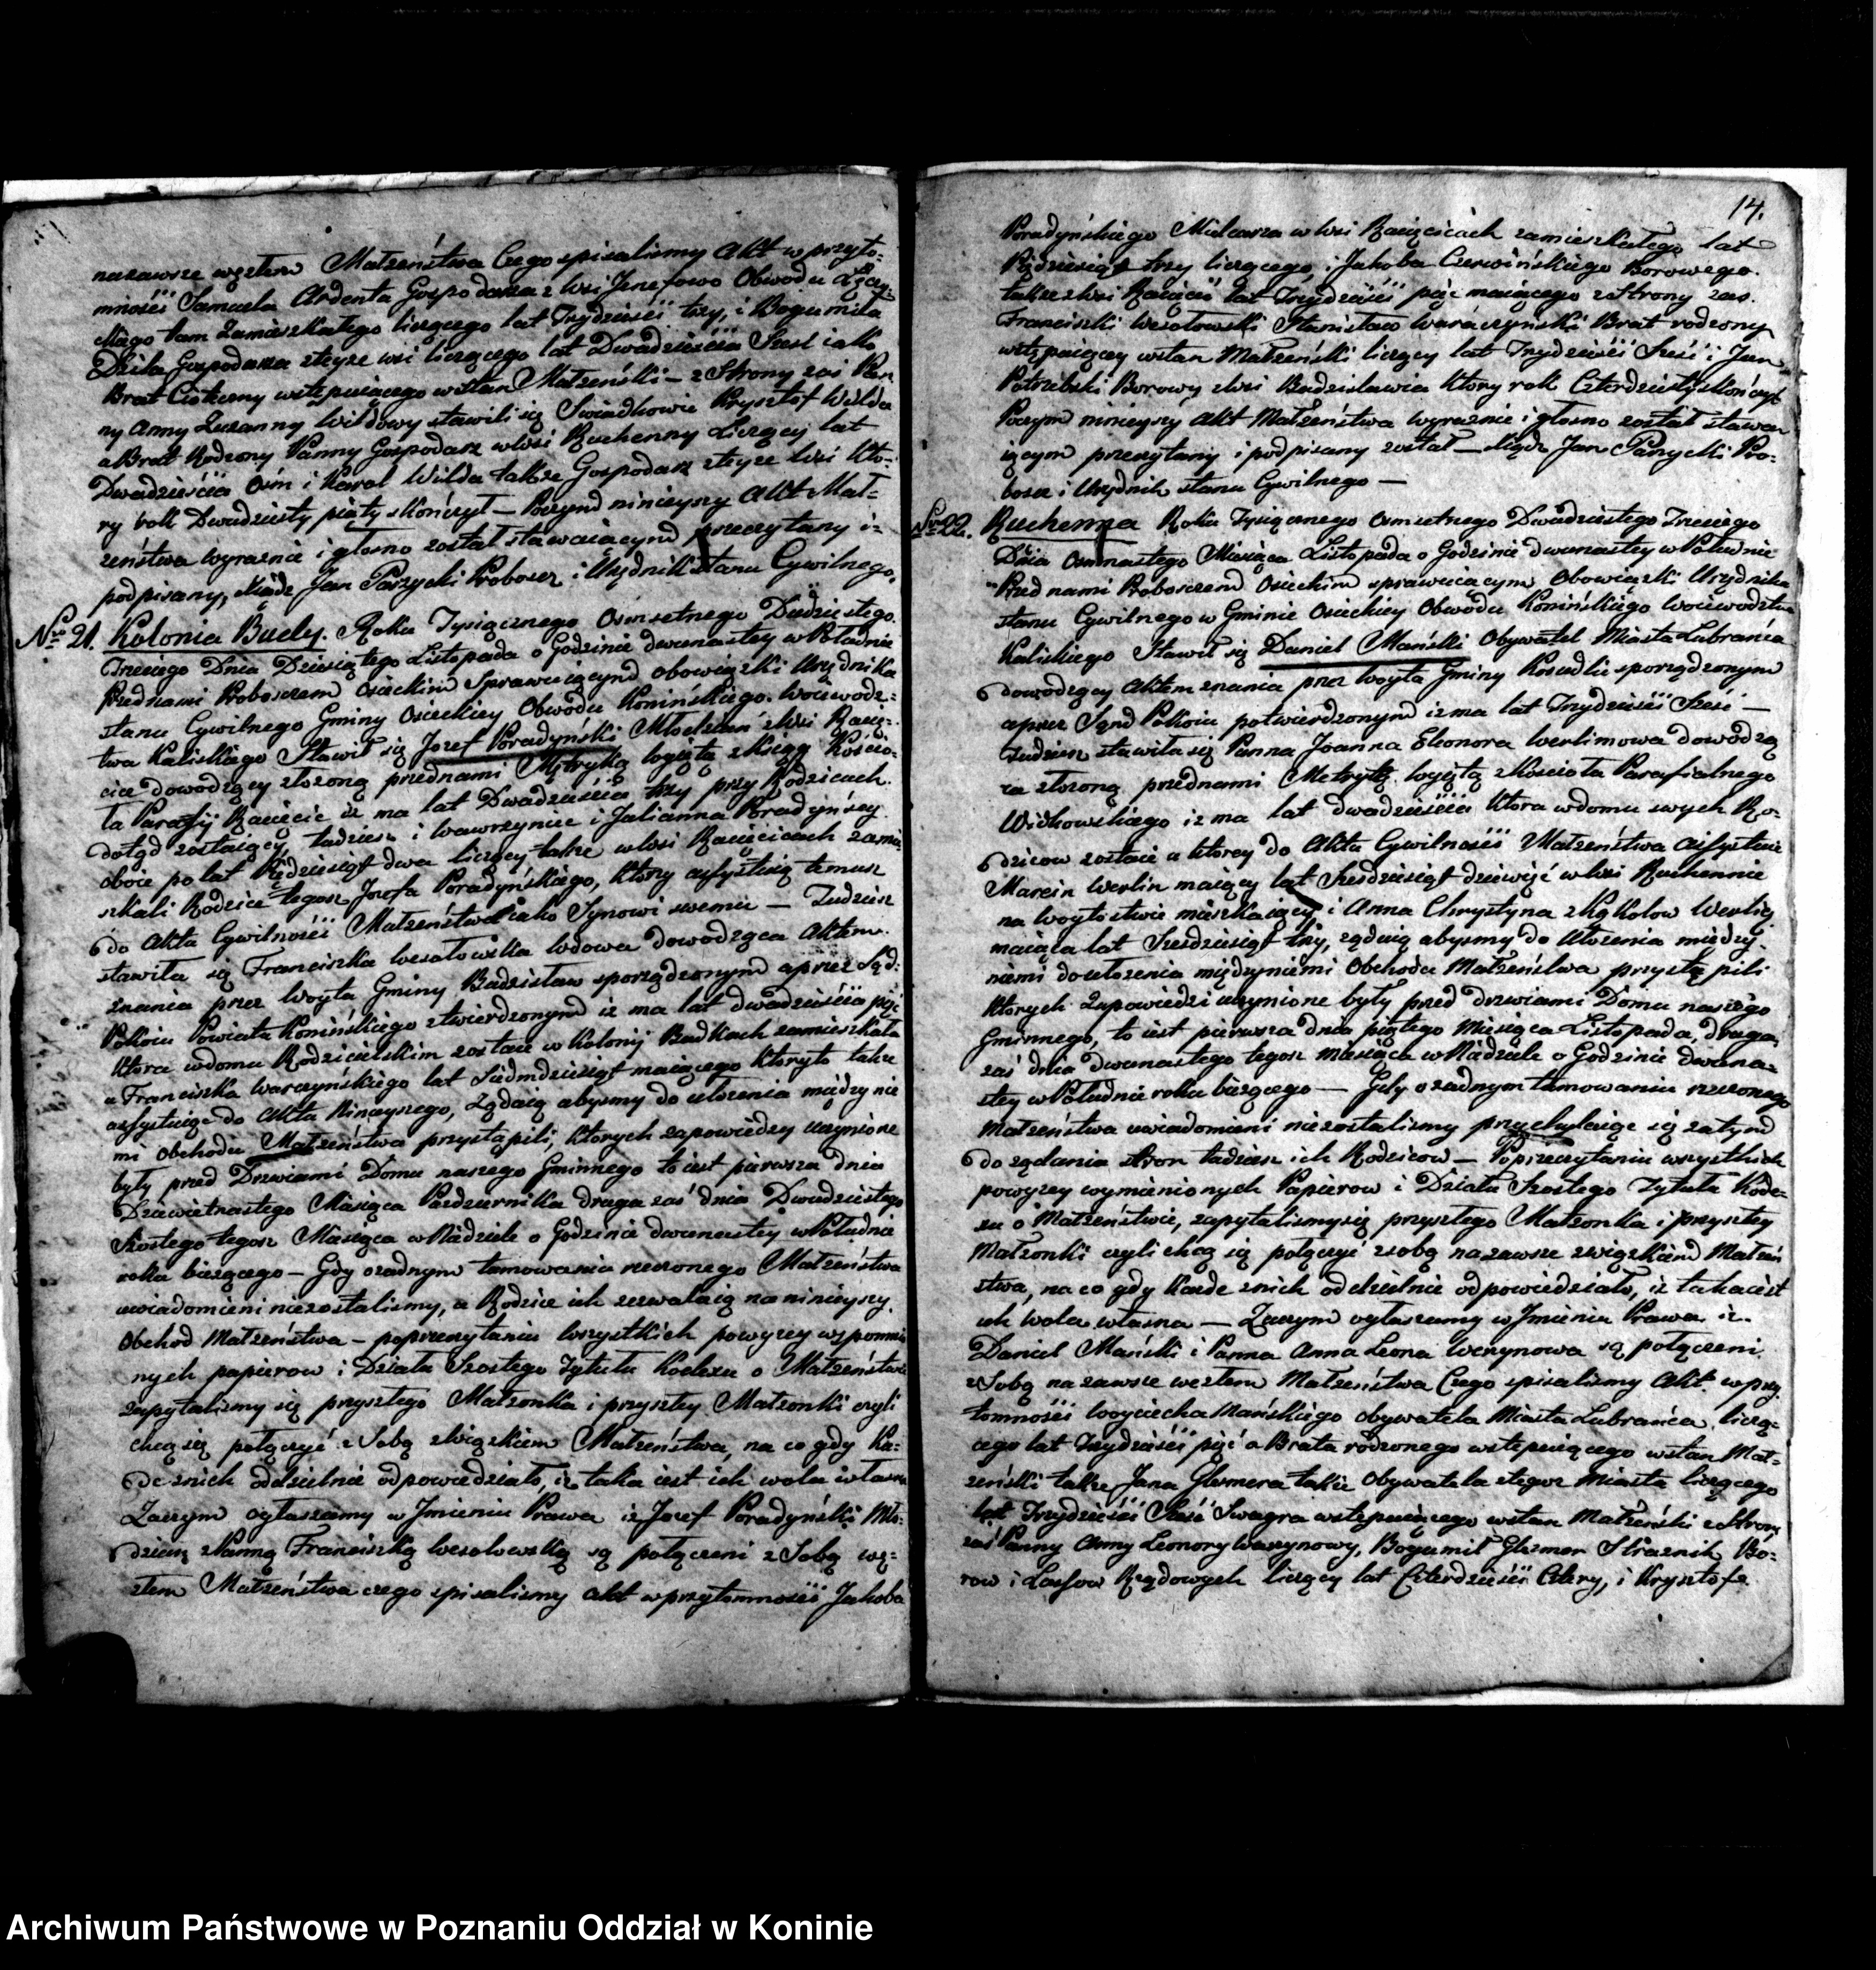 nazawsze węzłem Małżeństwa Czego spisalismy Akt w przyto-
mności Samuela Ardenta Gospodarza z wsi Jozefowo Obwodu
tam Zamieszkałego liczącego lat Trzydzieści trzy, i Bogumiła
Gospodarza z teyze wsi liczącego lat Dwadzieścia Szesc iako
Brat Cioteczny wstępuiącego w stan Małżeński – z Strony zaś Pan
ny Anny Zuzanny Wildowy stawili się Swiadkowie Krysztof Wilda
a Brat Rodzony Panny Gospodarz w Wsi Ruchenny Liczący lat
Dwadzieścia Ośm i Karol Wilda także Gospodarz z teyze Wsi Kto-
ry rok Dwadziesty piąty skończył – Poczym ninieyszy Akt Mał-
żeństwa wyraznie i głosno został stawaiącym przeczytany i
podpisany, Xiądz Jan Parzycki Proboszcz i Urzędnik Stanu Cywilnego.
Nro 21. Kolonia Budy. Roku Tysiącznego Osmsetnego Dudziestego
Trzeciego Dnia Dziesiątego Listopada o Godzinie dwunastey w Południe
Przednami Proboszczem Osieckim Sprawuiącym obowiązki Urzędnika
stanu Cywilnego Gminy Osieckiey Obwodu Konińskiego. Woiewodz-
twa Kaliskiego Stawił się Jozef Poradyński Młodzian z Wsi Racię-
cic dowodzący złożoną przednami Metryką wyiętą z Xiąg Kościo-
ła Parafij Racięcic iż ma lat Dwadzieścia trzy przy Rodzicach
dotąd zostaiący, tudziesz i Wawrzyniec i Julianna Poradyńscy
oboie po lat Pędziesiąt dwa liczący także w Wsi Racięcicach zamie-
szkali Rodzice tegoz Jozefa Poradyńskiego, Ktory assystuią temuz
do Akta Cywilności Małżeństwa iako Synowi swemu – Tudziesz
stawiła się Franciszka Wesołowska Wdowa dowodząca Aktem
znania przez Woyta Gminy Budzisław sporządzonym a przez Sąd
Pokoiu Powiatu Konińskiego ztwierdzonym iz ma lat dwadzieścia pięć
Ktora w domu Rodzicielskim zostaie w Kolonij Budkach zamieszkała
u Franciszka Warczyńskiego lat Siedmdziesiąt maiącego Ktoryto także
assystuige do Akta Ninieyszego, Żądaią abysmy do ułożenia między nie
mi Obchodu Małżeństwa przystąpili, Ktorych zapowiedzy uczynione
były przed Drzwiami Domu naszego Gminnego to iest pierwsza dnia
Dziewietnastego Miesiąca Pazdziernika druga zaś dnia Dwudziestego
Szostego tegoz Miesiąca w Niedziele o Godzinie dwunastey w Południe
roku bieżącego – Gdy o żadnym tamowaniu rzeczonego Małżeństwa
uwiadomieni niezostalismy, a Rodzice ich zezwalaią na ninieyszy
Obchod Małżeństwa – po przeczytaniu Wszystkich powyzey wspomnio
nych papierow i Działu Szostego Tytułu Kodexu o Małżeństwie
zapytalismy się przyszłego Małżonka i przyszłey Małżonki czyli
chcą się połączyć z Sobą związkiem Małżeństwa, na co gdy Ka-
żde z nich Oddzielnie odpowiedziało, iż taka iest ich wola własna
Zaczym ogłaszamy w Jmieniu Prawa iż Jozef Poradyński Mło-
dzian z Panną Franciszką Wesołowską są połączeni z Sobą wę-
złem Małżeństwa czego spisalismy Akt w przytomności Jakoba
14.
Poradyńskiego Mielcarza w Wsi Racięcicach zamieszkałego lat
Pięćdziesiąt trzy liczącego, i Jakoba Czerwińskiego Borowego
także z Wsi Racięcic lat Trzydzieści pięć maiącego z Strony zaś
Franciszki Wesołowski Stanisław Warczyński Brat rodzony
wstępuiący w stan Małżeński liczący lat Trzydzieści Sześć i Jan
Potrzebski Borowy z Wsi Budzisławia Ktory rok Czterdziesty skończył
Poczym ninieyszy Akt Małżeństwa wyraznie i głosno został stawa
iącym przeczytany i podpisany został – Xiądz Jan Parzycki Pro-
boszcz i Urzędnik stanu Cywilnego –
Nro 22. Ruchenna Roku Tysiącznego Osmsetnego Dwudziestego Trzeciego
Dnia Osmnastego Miesiąca Listopada o Godzinie dwunastey w Południe
Przed nami Proboszczem Osieckim sprawuiącym Obowiązki Urzędnika
stanu Cywilnego w Gminie Osieckiey Obwodu Konińskiego Woiewodztwa
Kaliskiego Stawił się Daniel Mański Obywatel Miasta Lubrańca
dowodzący Aktem znania przez Woyta Gminy sporządzonym
a przez Sąd Pokoiu potwierdzonym iz ma lat Trzydzieści Sześć –
Tudziesz stawiła się Panna Joanna Eleonora Werlinowa dowodzą
ca złożoną przednami Metryką wyiętą z Kościoła Parafialnego
iz ma lat dwadzieścia Ktora w domu swych Ro-
dzicow zostaie a Ktorey do Akta Cywilności Małżeństwa assystuie
Marcin Werlin maiący lat Szesdziesiąt dziewięć w Wsi Ruchennie
na Woytostwie mieszkaiący i Anna Chrystyna z Kąkolow Werlin
maiąca lat Szesdziesiąt trzy, żądaią abysmy do Ułożenia między
niemi do ułożenia międzyniemi Obchodu Małżeństwa przystąpili
Ktorych Zapowiedzi uczynione były przed drzwiami Domu naszego
Gminnego, to iest pierwsza dnia piątego Miesiąca Listopada, druga
zaś dnia dwunastego tegoz Miesiąca w Niedziele o Godzinie dwuna-
stey w Południe roku bieżącego – Gdy o żadnym tamowaniu rzeczonego
Małżeństwa uwiadomieni niezostalismy przychylaige się zatym
do żądania stron tudziesz ich Rodzicow – Po przeczytaniu wszystkich
powyzey wymienionych Papierow i Działu Szostego Tytułu Kode-
xu o Małżeństwie, zapytalismysię przyszłego Małżonka i przyszłey
Małżonki czyli chcą się połączyć z sobą nazawsze związkiem Małżeń
stwa, na co gdy Każde znich oddzielnie odpowiedziało, iż taka iest
ich Wola własna – Zaczym ogłaszamy w Jmieniu Prawa iż
Daniel Mański i Panna Anna Leona Werynowa są połączeni
z Sobą nazawsze węzłem Małżeństwa Czego spisalismy Akt w przy
tomności Woyciecha Mańskiego Obywatela Miasta Lubrańca liczą-
cego lat Trzydzieści pięć a Brata rodzonego wstępuiącego w stan Mał-
żeński także Jana Glesmera także Obywatela z tegoz Miasta liczącego
lat Trzydzieści Sześć Swagra wstępuiącego w stan Małżeński z Strony
zaś Panny Anny Leonory Werynowy, Bogumił Glesmer Strażnik Bo-
row i Lassow Rządowych liczący lat Czterdzieści Cztery, i Krysztofa